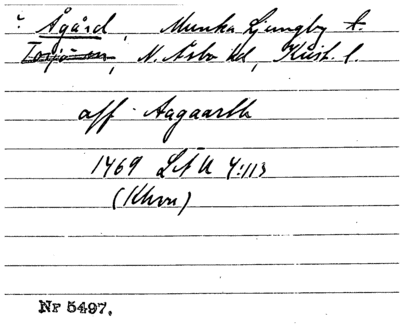 Ågård, Munka Ljungby t.
N. Åsbo hd, Krist. l.
aff Aagaarth
1469 LÄU 4:113
(Khvn)
Nr 5497.